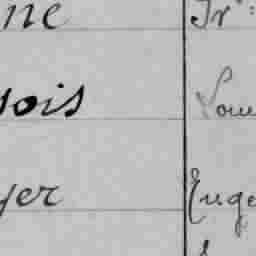 ne Fr
sois Lou
yer Euge